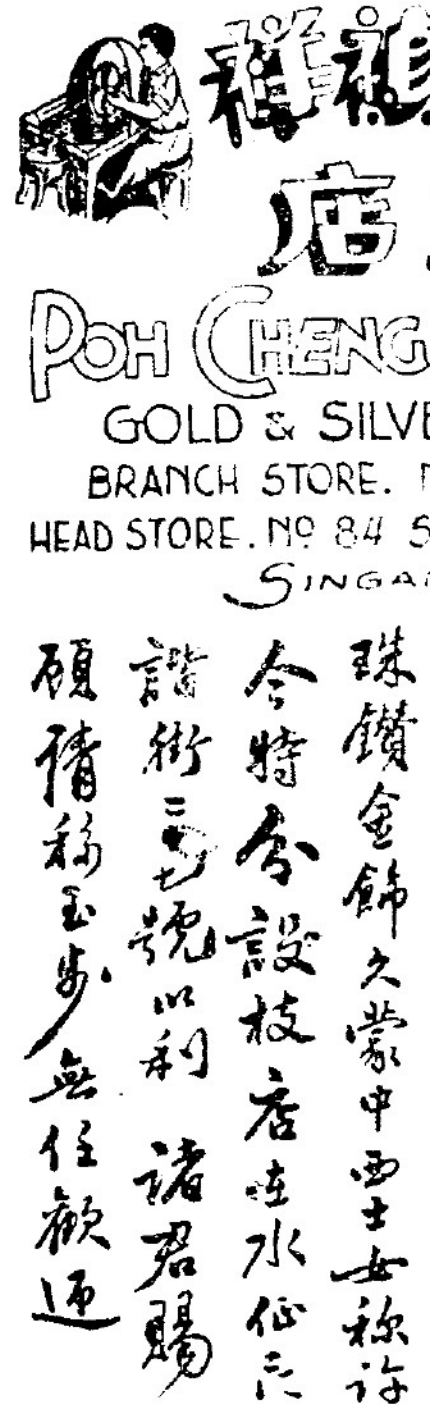 祥
店
POH CHENG
GOLD & SILVE
BRANCH STORE.
HEAD STORE. Nº 84 S
SINGA
珠鑽金飾久蒙中西士女称許
今特分設枝店在水仙門
諧街號以利 諸君賜
顧請移玉步無任歡迎